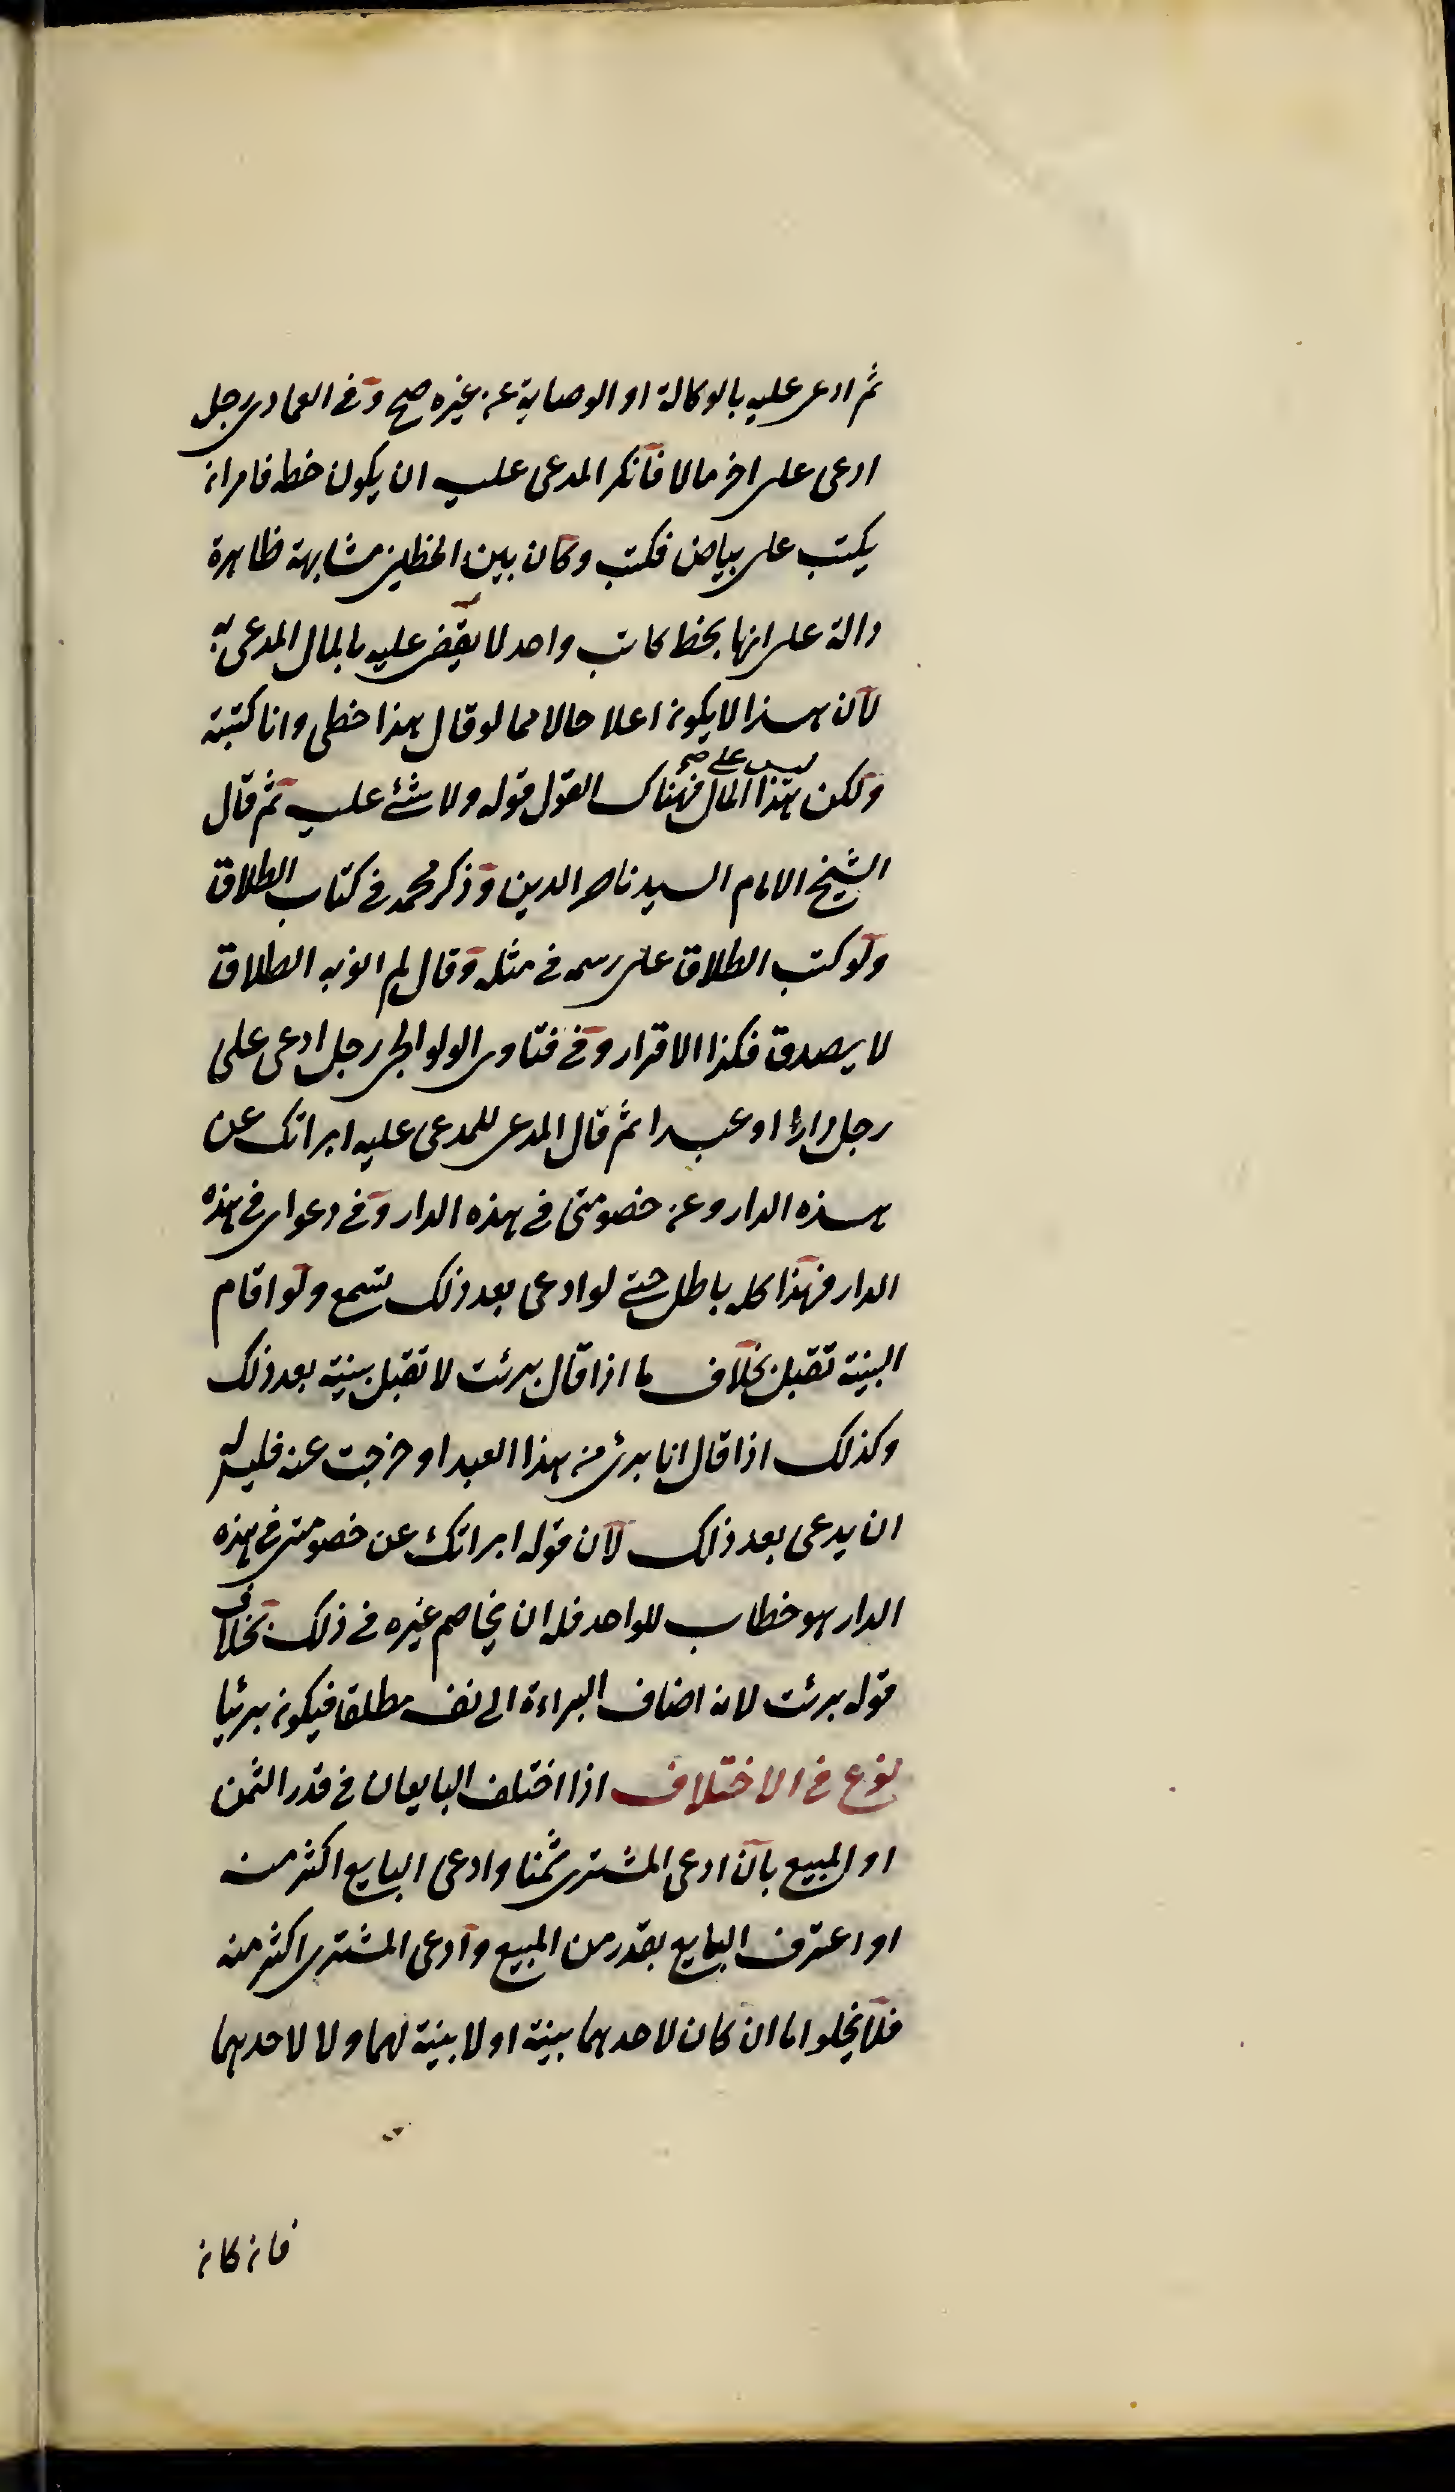 ثم ادعى عليه بالوكالة او الوصاية عن غيره صح وفي العمادى رجل
ادعى على اخر مالا فانكر المدعى عليه ان يكون خطه فامر ان
يكتب على بياض فكتب وكان بين الخطين مشابهة ظاهرة
دالة على انها بخط كاتب واحد لا يقضى عليه بالمال المدعى به
لان هذا لا يكون اعلا حالا مما لو قال هذا خطى وانا كتبته
ليس على صح
ولكن هذا المال فهناك القول قوله ولا شئ عليه ثم قال
الشيخ الامام السيد ناصر الدين وذكر محمد في كتاب الطلاق
ولو كتب الطلاق على رسمه في مثله وقال لم انو به الطلاق
لا يصدق فكذا الاقرار وفي فتاوى الولوالجى رجل ادعى على
رجل دارا او عبدا ثم قال المدعى للمدعى عليه ابراتك عن
هذه الدار وعن خصومتى في هذه الدار وفي دعواى في هذه
الدار فهذا كله باطل حتى لو ادعى بعد ذلك تسمع ولو اقام
البينة تقبل بخلاف ما اذا قال برئت لا تقبل بينته بعد ذلك
وكذلك اذا قال انا برئ من هذا العبد او خرجت عنه فليس له
ان يدعى بعد ذلك لان قوله ابراتك عن خصومتى في هذه
الدار هو خطاب للواحد فله ان يخاصم غيره في ذلك بخلاف
قوله برئت لانه اضاف البراءة الى نفسه مطلقا فيكون بريئا
نوع في الاختلاف اذا اختلف البايعان في قدر الثمن
او المبيع بان ادعى المشترى ثمنا وادعى البايع اكثر منه
او اعترف البايع بقدر من المبيع وادعى المشترى اكثر منه
فلا يخلوا اما ان كان لاحدهما بينة او لا بينة لهما ولا لاحدهما
فان كان